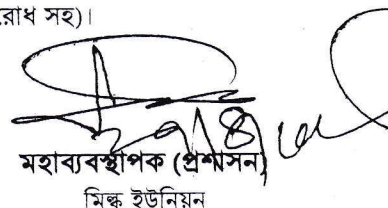 রোধ সহ)।
মহাব্যবস্থাপক (প্রশাসন)
মিল্ক ইউনিয়ন